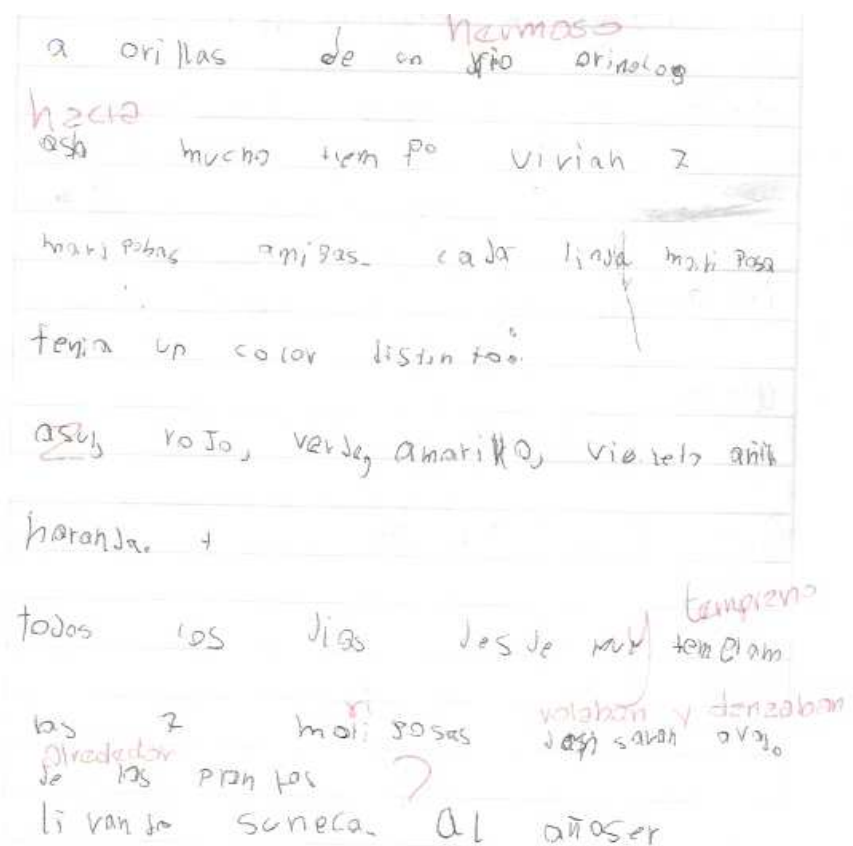 hermoso
a orillas de un rio orinolog
hacia
asia mucho tiempo vivian 7
maripobas amigas. cada linda mariposa
tenia un color distinto:
asul, rojo, verde, amarillo, vioreto añil
naranja.
temprano
todos los dias desde muy templam
ri volaban y danzaban
las 7 moliposas avajo
alrededor
de las prantas ?
li vando suneca. al añoser